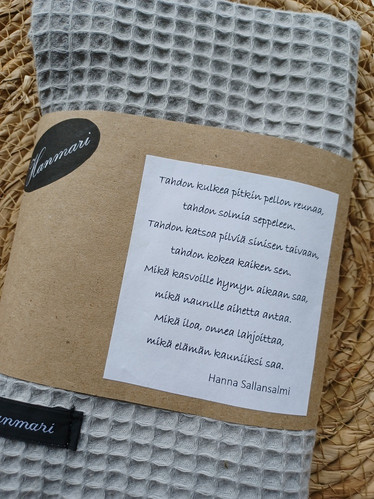 Hanmari
Tahdon kulkea pitkin pellon reunaa,
tahdon solmia seppeleen.
Tahdon katsoa pilviä sinisen taivaan,
tahdon kokea kaiken sen.
Mikä kasvoille hymyn aikaan saa,
mikä naurulle aihetta antaa.
Mikä iloa, onnea lahjoittaa,
mikä elämän kauniiksi saa.
Hanna Sallansalmi
anmari